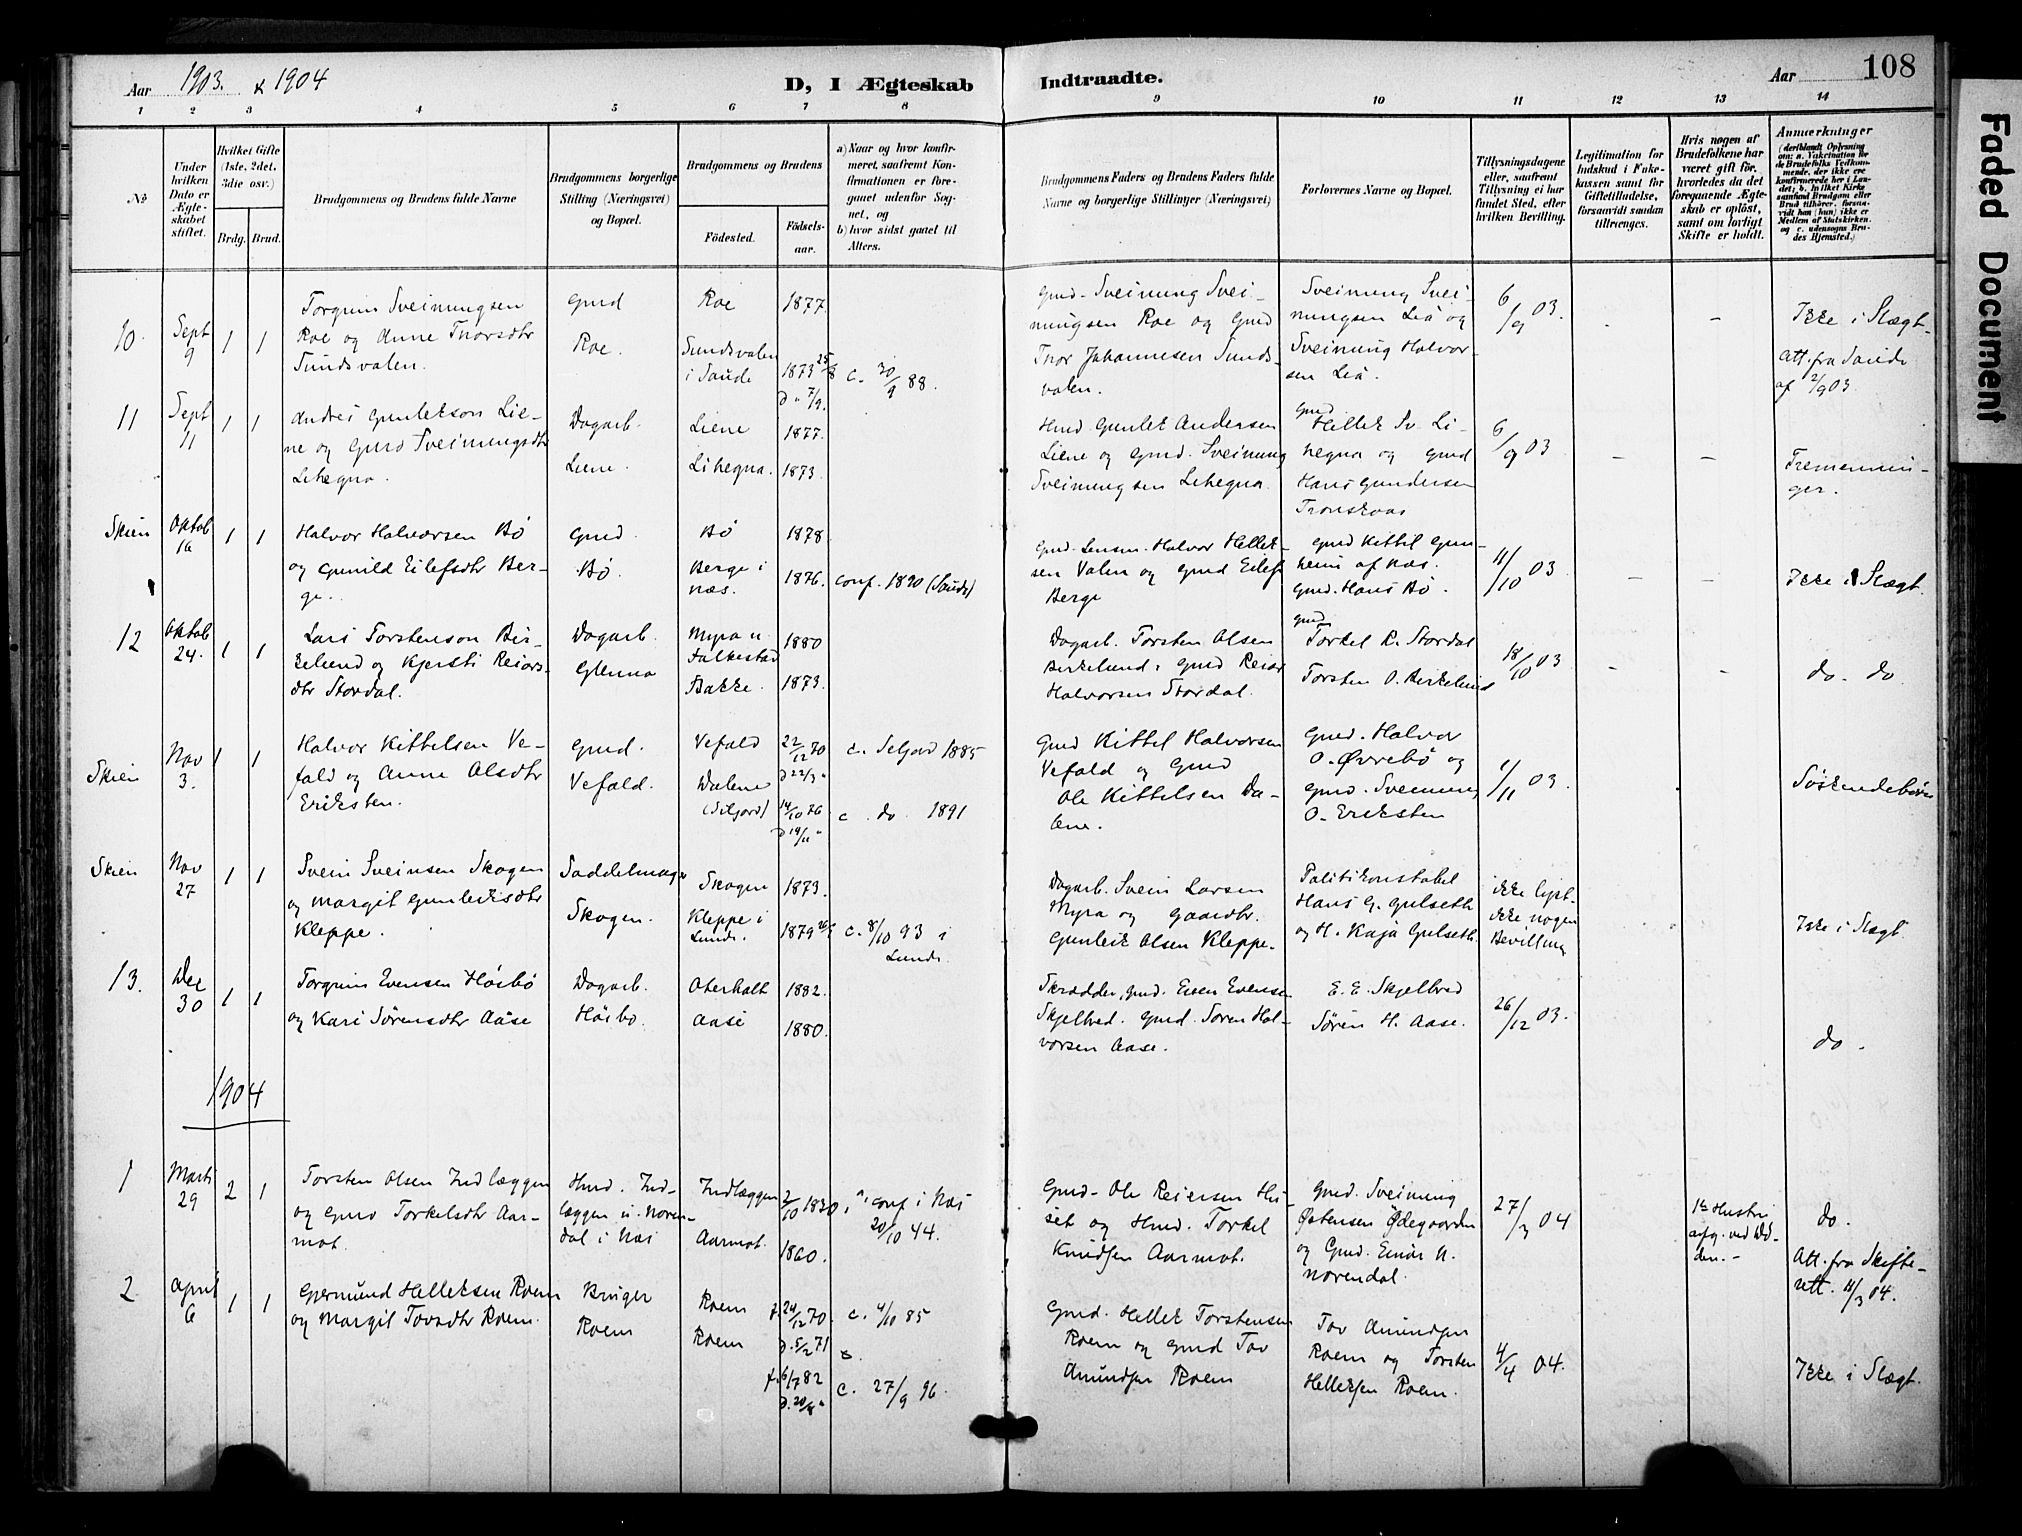 Aar 1903. & 1904
D, I Ægteskab Indtraadte.
Aar 108
1 2 3 4 5 6 7 8 9 10 11 12 13 14
No
Under hvilken Dato er Ægteskabet stiftet.
Hvilket Gifte (1ste, 2det, 3die osv.)
Brdg. Brud.
Brudgommens og Brudens fulde Navne
Brudgommens borgerlige Stilling (Næringsvei) og Bopæl.
Brudgommens og Brudens
Fødested. Fødselsaar.
a) Naar og hvor konfirmeret, saafremt Konfirmationen er foregaaet udenfor Sognet, og
b) hvor sidst gaaet til Alters.
Brudgommens Faders og Brudens Faders fulde Navne og borgerlige Stillinger (Næringsvei)
Forlovernes Navne og Bopæl.
Tillysningsdagene eller, saafremt Tillysning ei har fundet Sted, efter hvilken Bevilling.
Legitimation for Indskud i Enkekassen samt for Giftetilladelse, forsaavidt saadan tiltrænges.
Hvis nogen af Brudefolkene har været gift før, hvorledes da det foregaaende Ægteskab er opløst, samt om lovligt Skifte er holdt.
Anmærkninger
10. Sept 9 1 1
Torgrim Sveinungsen
Roe og Anne Thorsdtr
Sundsvalen.
Gmd
Roe.
Roe 1877.
Sundsvalen
i Saude 1873 25/8
d " 7/9.
c. 30/9 88.
Gmd- Sveinung Svei-
nungsen Roe og Gmd
Thor Johannesen Sunds-
valen.
Sveinung Svei-
nungsen Liå og
Sveinung Halvor-
sen Liå.
6/9 03.
Ikke i Slægt.
Att. fra Saude
af 2/9 03.
11 Sept 11 1 1
Andres Gunleikson Lie-
ne og Gmd Sveinungsdtr
Lihegna.
Dagarb.
Liene.
Liene 1877.
Lihegna. 1873.
Hmd Gunleik Andersen
Liene og Gmd. Sveinung
Sveinungsen Lihegna.
Gmd
Hellek Sv. Li-
hegna og Gmd
Hans Gundersen
6/9 03
Tremennin-
ger.
Skien Oktob 16 1 1
Halvor Halvorsen Bö
og Gunild Eilefsdtr Ber-
ge.
Gmd.
Bö.
Bö 1878
Berge i
Næs. 1876.
conf. 1890 (Saude)
Gmd. Lensm. Halvor Hellek-
sen Valen og Gmd Eilef
Berge
Gmd Kittil Gun-
heim af Næs.
Gmd. Hans Bö.
11/10 03
Ikke i Slægt.
12 Oktob 24. 1 1
Lars Torstenson Bir-
kelund og Kjersti Reiars-
dtr Stordal.
Dagarb.
Glenna
Myra u.
Folkestad 1880
Bakke. 1873.
Dagarb. Torsten Olsen
Birkelund. Gmd Reiar
Halvorsen Stordal.
Gmd
Torkel R. Stordal
Torsten O. Birkelund
18/10 03
do. do
Skien Nov 3. 1 1
Halvor Kittelsen Ve-
fald og Anne Olsdtr
Eriksten.
Gmd.
Vefald.
Vefald 22/12 70
d 22/3 "
Dalene
(Seljord) 14/10 76
d 19/11 "
c. Seljord 1885
c. do. 1891
Gmd Kittel Halvorsen
Vefald og Gmd
Ole Kittelsen Da-
lene.
Gmd. Halvor
O. Øvrebö og
Gmd. Sveinung
O. Eriksten
1/11 03.
Söskendebörn
Skien Nov 27 1 1
Svein Sveinsen Skogen
og Margit Gunleiksdtr
Kleppe.
Saddelmager
Skogen.
Skogen 1873.
Kleppe i
Lunde. 1879
c. 8/10 93 i
Lunde.
Dagarb. Svein Larsen
Myra og Gaardbr.
Gunleik Olsen Kleppe.
Politikonstabel
Hans G. Gulseth
og H. Kaja Gulseth.
ikke lyst.
ikke nogen
Bevilling
Ikke i Slægt.
13. Dec 30 1 1
Torgrim Evensen Höibö
og Kari Sörensdtr Aase
Dagarb.
Höibö.
Oterholt 1882.
Aase 1880.
Skrædder, Gmd. Even Evensen
Skjelbred. Gmd. Sören Hal-
vorsen Aase.
E. E. Skjelbred
Sören H. Aase.
26/12 03.
do.
1904
1 Marts 29 2 1
Torsten Olsen Indlæggen
og Gmd Torkelsdtr Aar-
mot.
Hmd. Ind-
læggen u. Noren-
dal i Næs
Indlæggen 2/10 1830.
Aarmot. 1860.
conf i Næs
20/10 44.
Gmd- Ole Reiersen Hu-
set og Hmd. Torkel
Knudsen Aarmot.
Gmd. Sveinung
Østensen Ødegaarden
og Gmd. Einar N.
Norendal.
27/3 04
1te Hustru
afg. ved Dö-
den.-
do.
Att. fra Skifte-
rett. 11/3 04.
2. April 6 1 1
Gjermund Helleksen Roem
og Margit Tovsdtr Roem.
Bruger
Roem
Roem f. 24/12 70
Roem d. 5/2 71
f. 6/7 82
d. 20/8 "
c. 4/10 85
c. 27/9 96.
Gmd. Hellek Torstensen
Roem og Gmd Tov
Amundsen Roem
Tov Amundsen
Roem og Torsten
Helleksen Roem.
4/4 04.
Ikke i Slægt.
Faded Document